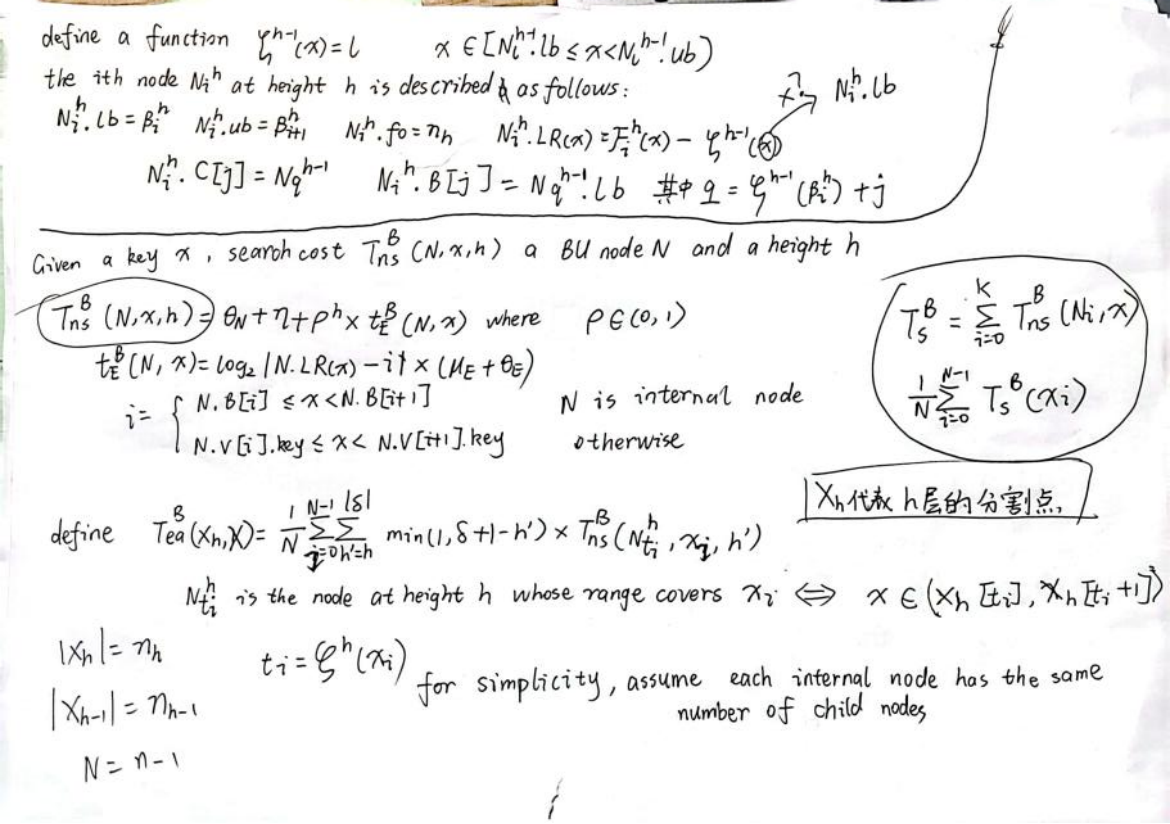 define a function ζ^{h-1}(x)=l    x ∈[N_l^{h-1}.lb ≤ x<N_l^{h-1}.ub)
the ith node N_i^h at height h is described as follows:
x? N_i^h.lb
N_i^h.lb=β_i^h  N_i^h.ub=β_{i+1}^h  N_i^h.fo=n_h  N_i^h.LR(x)=F_i^h(x) - ζ^{h-1}(x)
N_i^h.C[j]=N_q^{h-1}  N_i^h.B[j]=N_q^{h-1}.lb 其中 q=ζ^{h-1}(β_i^h)+j
Given a key x, search cost T_{ns}^B(N,x,h) a BU node N and a height h
T_{ns}^B(N,x,h)=θ_N+η+ρ^h×t_E^B(N,x) where ρ∈(0,1)
t_E^B(N,x)=log_2|N.LR(x)-i|×(μ_E+θ_E)
i= { N.B[i] ≤x<N.B[i+1]    N is internal node
N.V[i].key≤x<N.V[i+1].key    otherwise
T_s^B=∑_{i=0}^K T_{ns}^B(N_i,x)
1/N ∑_{i=0}^{N-1} T_s^B(x_i)
X_h代表h层的分割点
define T_{ea}^B(X_h,X)= 1/N ∑_{j=0}^{N-1} ∑_{h'=h}^{|δ|} min(1,δ+1-h')×T_{ns}^B(N_{t_i}^h,x_j,h')
N_{t_i}^h is the node at height h whose range covers x_i ⟺ x∈(X_h[t_i],X_h[t_i+1])
|X_h|=n_h
t_i=ζ^h(x_i)
for simplicity, assume each internal node has the same
number of child nodes
|X_{h-1}|=n_{h-1}
N=n-1